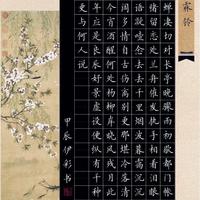 霖铃
蝉凄切对长亭晚骤雨初歇都门帐
绪留恋处兰舟催发执手相看泪眼
语凝噎念去去千里烟波暮霭沉沉
阔多情自古伤离别更那堪冷落清
今宵酒醒何处杨柳岸晓风残月此
年应是良辰好景虚设便纵有千种
更与何人说
甲辰伊彩书